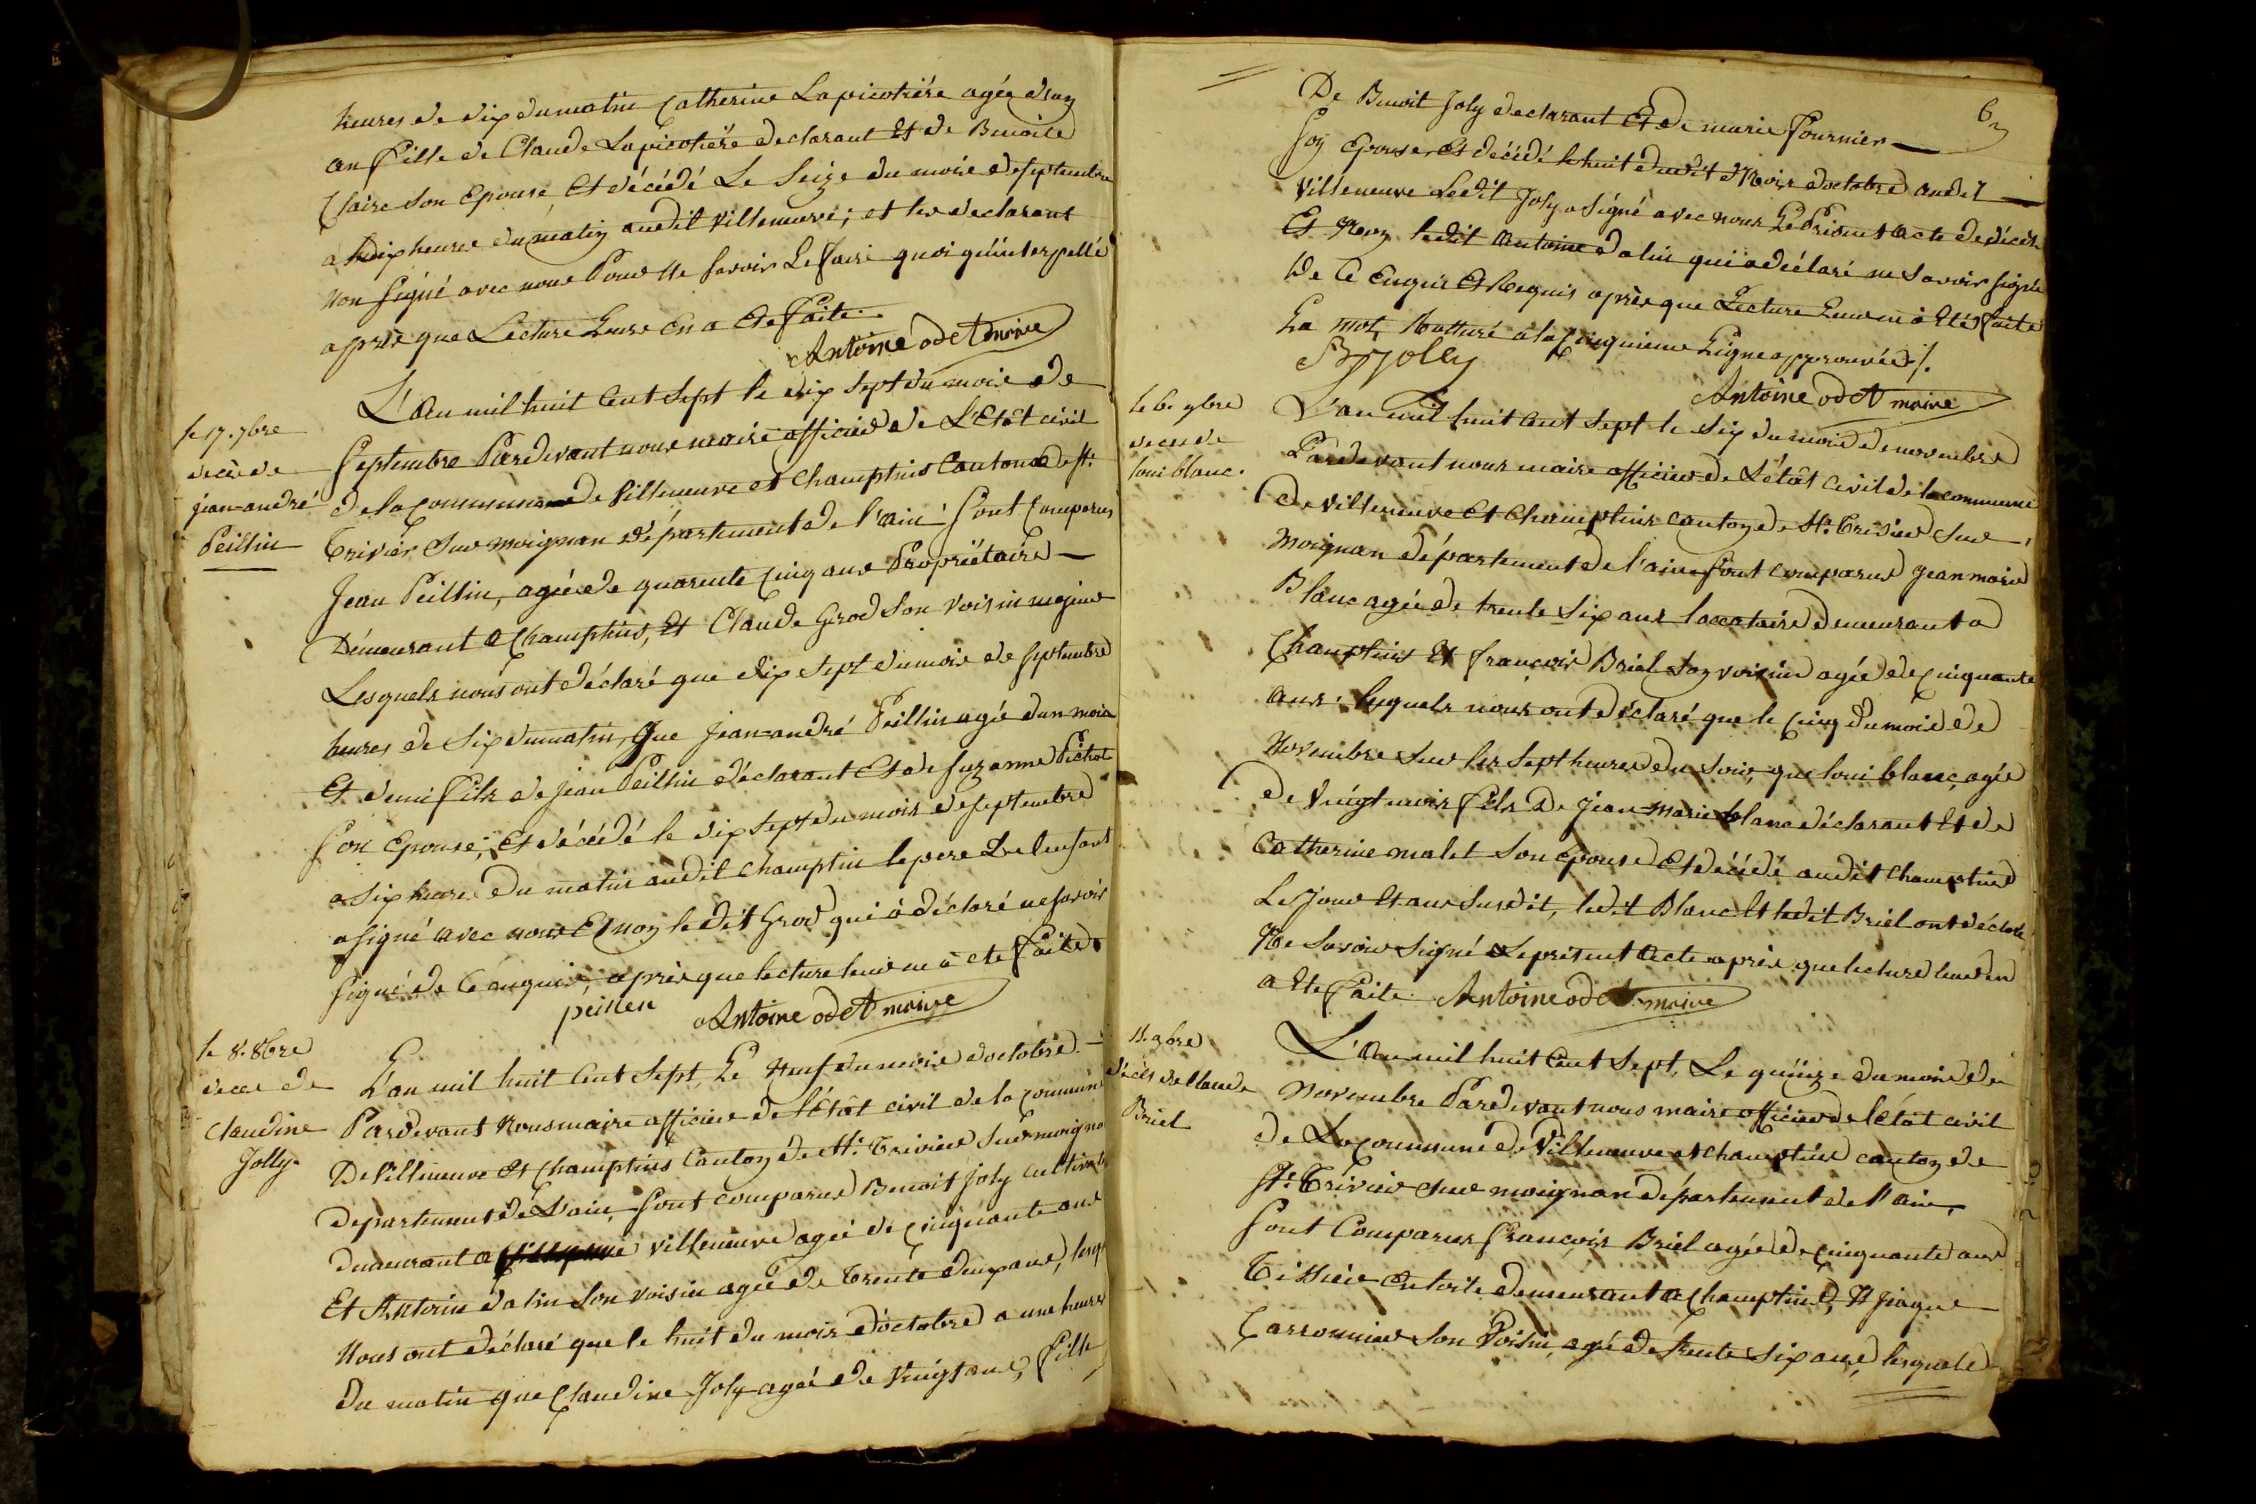 heures de dix du matin Catherine Lapicotiére agée d'un
an fille de Claude Lapicotiére declarant Et de Benoite
Claire Son Epouse, Et décédé Le Seize du mois de septembre
a dix heures du matin audit villeneuve; et les declarant
non signé avec nous Pour Ne savoir Le faire quoi qu'interpellé
après que Lecture Leurs En a Eté faite
Antoine odet maire
le 17. 7bre
décè de
jean-andré
Peillin
L'an mil huit Cent Sept le dix Sept du mois de
Septembre Pardevant nous maire officier de L'Etât civil
de la commune de villeneuve et Champtins Canton de St.
Trivier Sur moignan département de l'ain Sont Comparus
Jean Peillin, agée de quarente Cinq ans Propriétaire
Démeurant a Champtins, Et Claude Grod Son voisin majeur
Lesquels nous ont déclaré que dix Sept du mois de Septembre
heures de Six du matin, Que Jean-andré Peillin agée d'un mois
Et demi fils de jean Peillin déclarant Et de Suzanne
Son Epouse; Et décédé le dix Sept du mois de septembre
a Six heures du matin audit Champtin le pere de l'enfant
a signé avec nous Et non le dit Grod qui à déclaré ne savoir
signé de Ce enquis, après que lecture leur en à eté faite
peillen Antoine odet maire
le 8. 8bre
decé de
Claudine
Jolly.
L'an mil huit Cent Sept, Le Neuf du mois d'octobre
Pardevant Nous maire officier de l'Etât civil de la commune
De Villeneuve Et Champtins Canton de St. Trivier Sur moigna
departement de L'ain, Sont comparus Benoit Joly
demeurant a villeneuve agée de cinquante ans
Et Antoine dalin Son voisin agée de Trente ans,
Nous ont déclaré que le huit du mois d'octobre a une heures
du matin que Claudine Joly agée de vingt ans, fille
6
De Benoit Joly declarant Et de marie fournier
Son Epouse, Et décédé le huit dudit Mois d'octobre audit
villeneuve Ledit Joly a Signé avec nous Le Présent acte de décès
Et Non ledit Antoine dalin qui a déclaré ne Savoir signée
De Ce Enquis Et Requis après que Lecture Leur en à Eté faite
La mot,Ratturé à la Cinquieme Ligne approuvée ./.
B Jolly
Antoine odet maire
le 6. 9bre
deces de
loui blanc.
L'an mil huit Cent Sept le Six du mois de novembre
Pardevant nous maire officier de L'étât civil de la commune
de villeneuve Et Champtins canton de St. Trivier Sur
moignan département de l'ain Sont comparus jean marie
Blanc agée de trente Six ans locataire demeurant a
Champtins Et francois Briel Son voisin agée de Cinquante
ans. lesquels nous ont déclaré que le Cinq du mois de
Novembre Sur les Sept heures du Soir, que loui blanc, agée
de vingt mois fils de jean marie blanc déclarant Et de
Catherine malet Son épouse Et décédé audit Champtins
Le jour Et an Susdit, ledit Blanc Et ledit Briel ont déclaré
Ne Savoir Signé Le présent acte après que lecture leur en
a Ete faite. Antoine odet maire
9bre
décès de Claude
Briel
L'an mil huit Cent Sept, Le quinze du mois de
Novembre Pardevant nous maire officier de l'étât civil
de La commune de Villeneuve et Champtins canton de
St. Trivier Sur moignan département de l'ain,
Sont Comparus François Briel agée de Cinquante ans
Tissier en toile demeurant a Champtins, Et jaque
Carronnier Son Voisin, agé de trente Six ans, lesquels